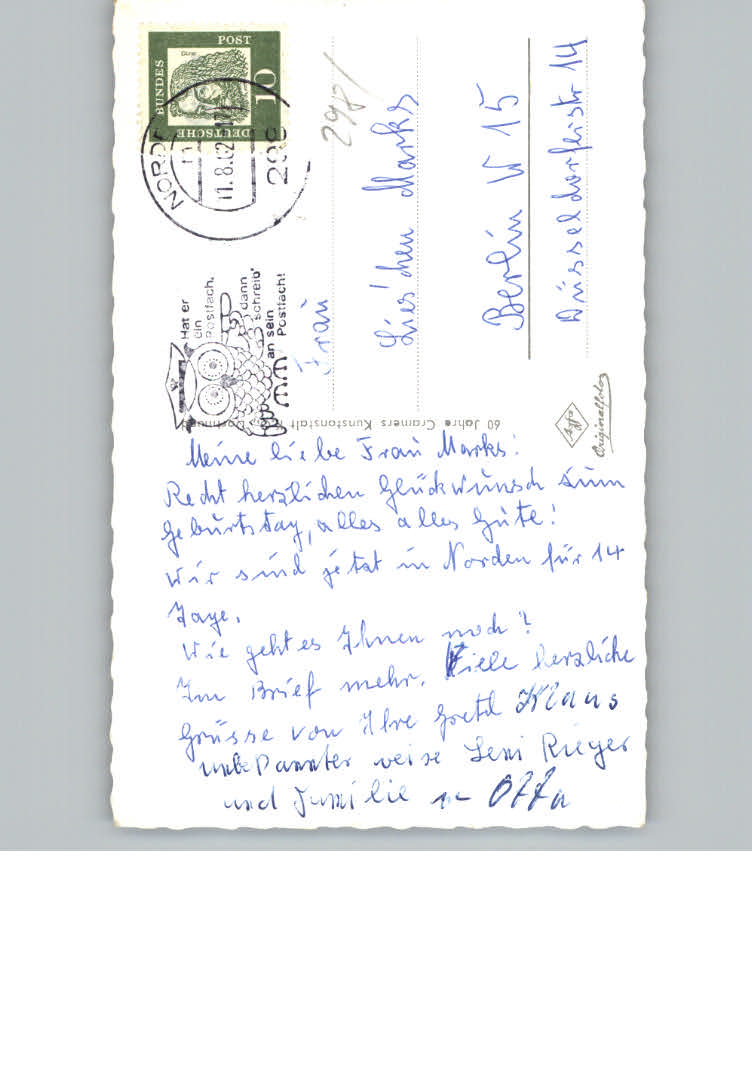 DEUTSCHE BUNDES POST
Dürer
10
11.8.62
298
Hat er
ein
Postfach,
dann
schreib'
an sein
Postfach!
Frau
Lies'chen Marks
Berlin W 15
Düsseldorferstr 14
60 Jahre Cramers Kunstanstalt Dortmund
Agfa
Originalfoto
Meine liebe Frau Marks!
Recht herzlichen Glückwunsch zum
Geburtstag, alles alles Gute!
Wir sind jetzt in Norden für 14
Tage.
Wie geht es Ihnen noch?
Im Brief mehr. Viele herzliche
Grüsse von Ihre Gretel Klaus
unbekannter weise Leni Rieger
und Familie